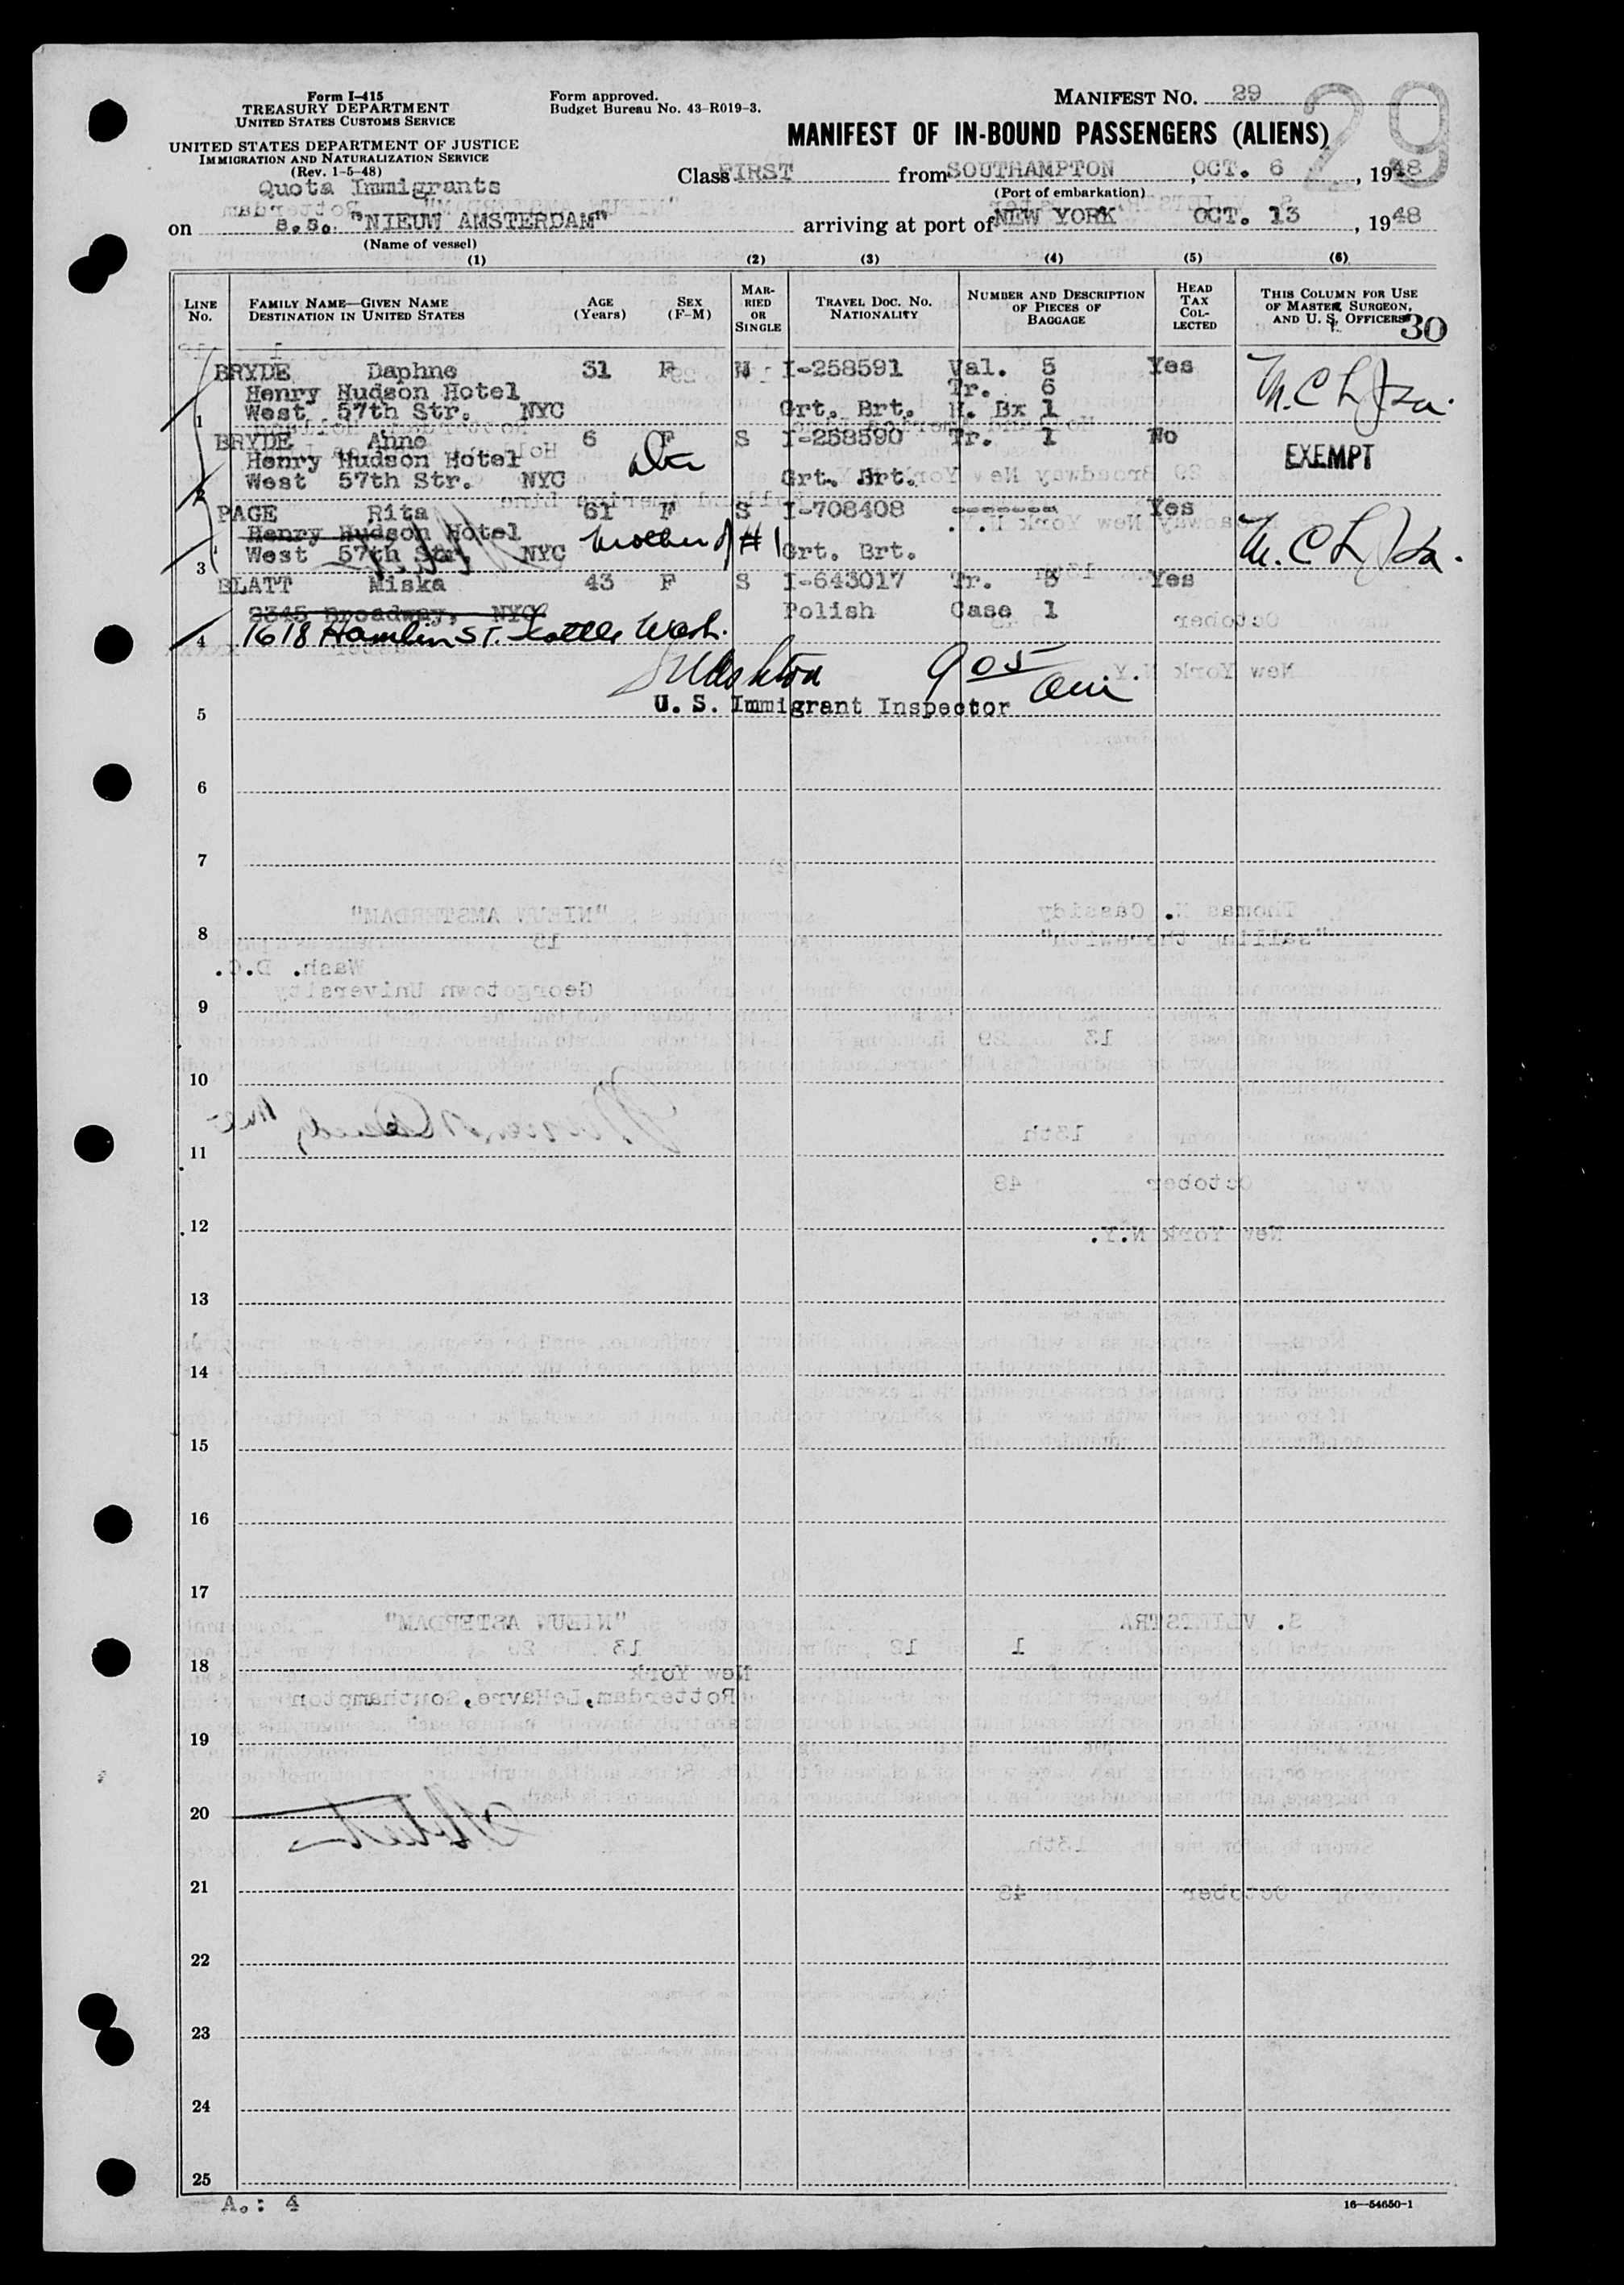 Form I-415
TREASURY DEPARTMENT
UNITED STATES CUSTOMS SERVICE
UNITED STATES DEPARTMENT OF JUSTICE
IMMIGRATION AND NATURALIZATION SERVICE
(Rev. 1-5-48)
Form approved.
Budget Bureau No. 43-R019-3.
MANIFEST NO. 29
29
MANIFEST OF IN-BOUND PASSENGERS (ALIENS)
Class FIRST from SOUTHAMPTON, OCT. 6, 1948
(Port of embarkation)
Quota Immigrants
on s.s. "NIEUW AMSTERDAM" arriving at port of NEW YORK OCT. 13, 1948
(Name of vessel)
(1) (2) (3) (4) (5) (6)
LINE NO. FAMILY NAME—GIVEN NAME DESTINATION IN UNITED STATES AGE (Years) SEX (F-M) MARRIED OR SINGLE TRAVEL DOC. NO. NATIONALITY NUMBER AND DESCRIPTION OF PIECES OF BAGGAGE HEAD TAX COLLECTED THIS COLUMN FOR USE OF MASTER, SURGEON, AND U. S. OFFICERS
30
BRYDE Daphne 31 F M I-258591 Val. 5 Yes
Henry Hudson Hotel Tr. 6
1 West 57th Str. NYC Grt. Brt. H. Bx 1
BRYDE Anne 6 F S I-258590 Tr. 1 No
Henry Hudson Hotel EXEMPT
2 West 57th Str. NYC Grt. Brt.
PAGE Rita 61 F S I-708408 ------- Yes
Henry Hudson Hotel mother of #1
3 West 57th Str. NYC Grt. Brt.
BLATT Miska 43 F S I-643017 Tr. 5 Yes
2345 Broadway, NYC Polish Case 1
4 1618 Hamlin ST. Seattle Wash.
905
U. S. Immigrant Inspector
5
6
7
8
9
10
11
12
13
14
15
16
17
18
19
20
21
22
23
24
25
A.: 4
16—54650-1